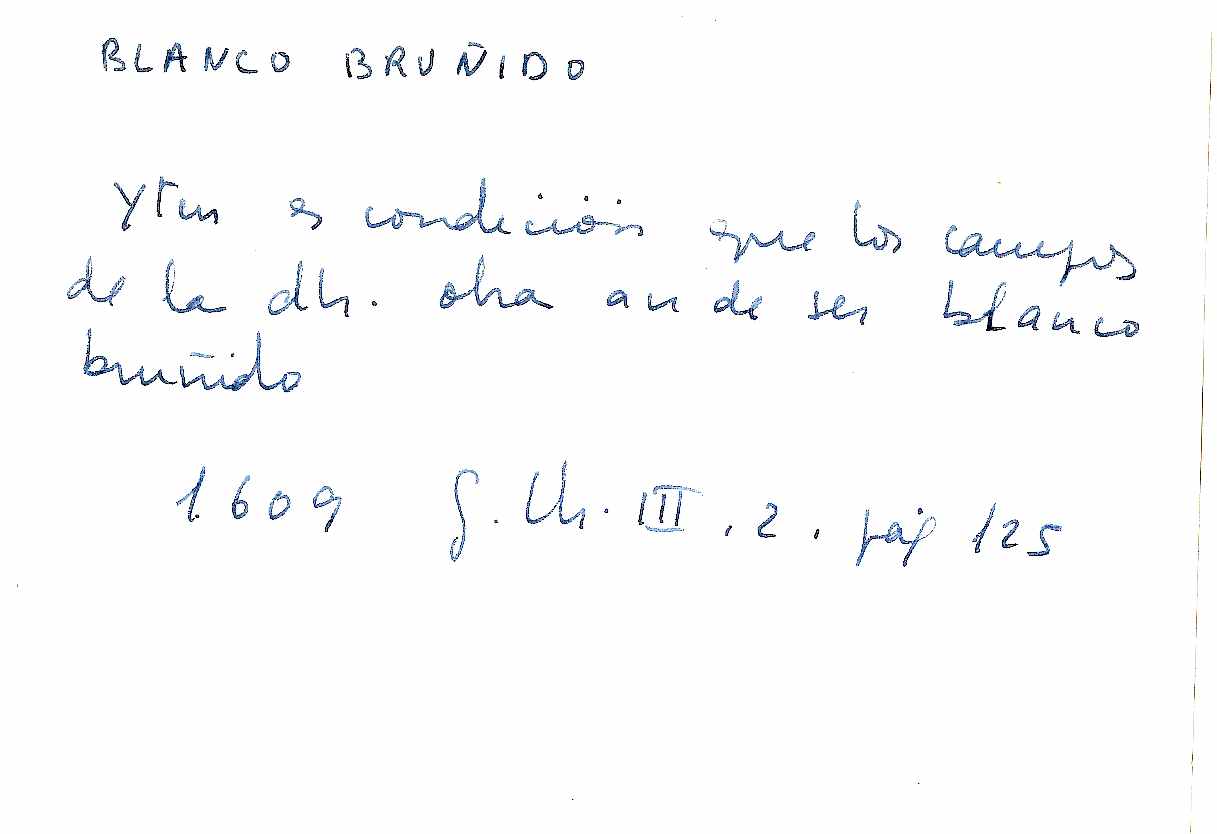 BLANCO BRUÑIDO
Yten es condición que los campos
de la dh. obra an de ser blanco
bruñido
1609 G. Ch. III. 2. pág 125